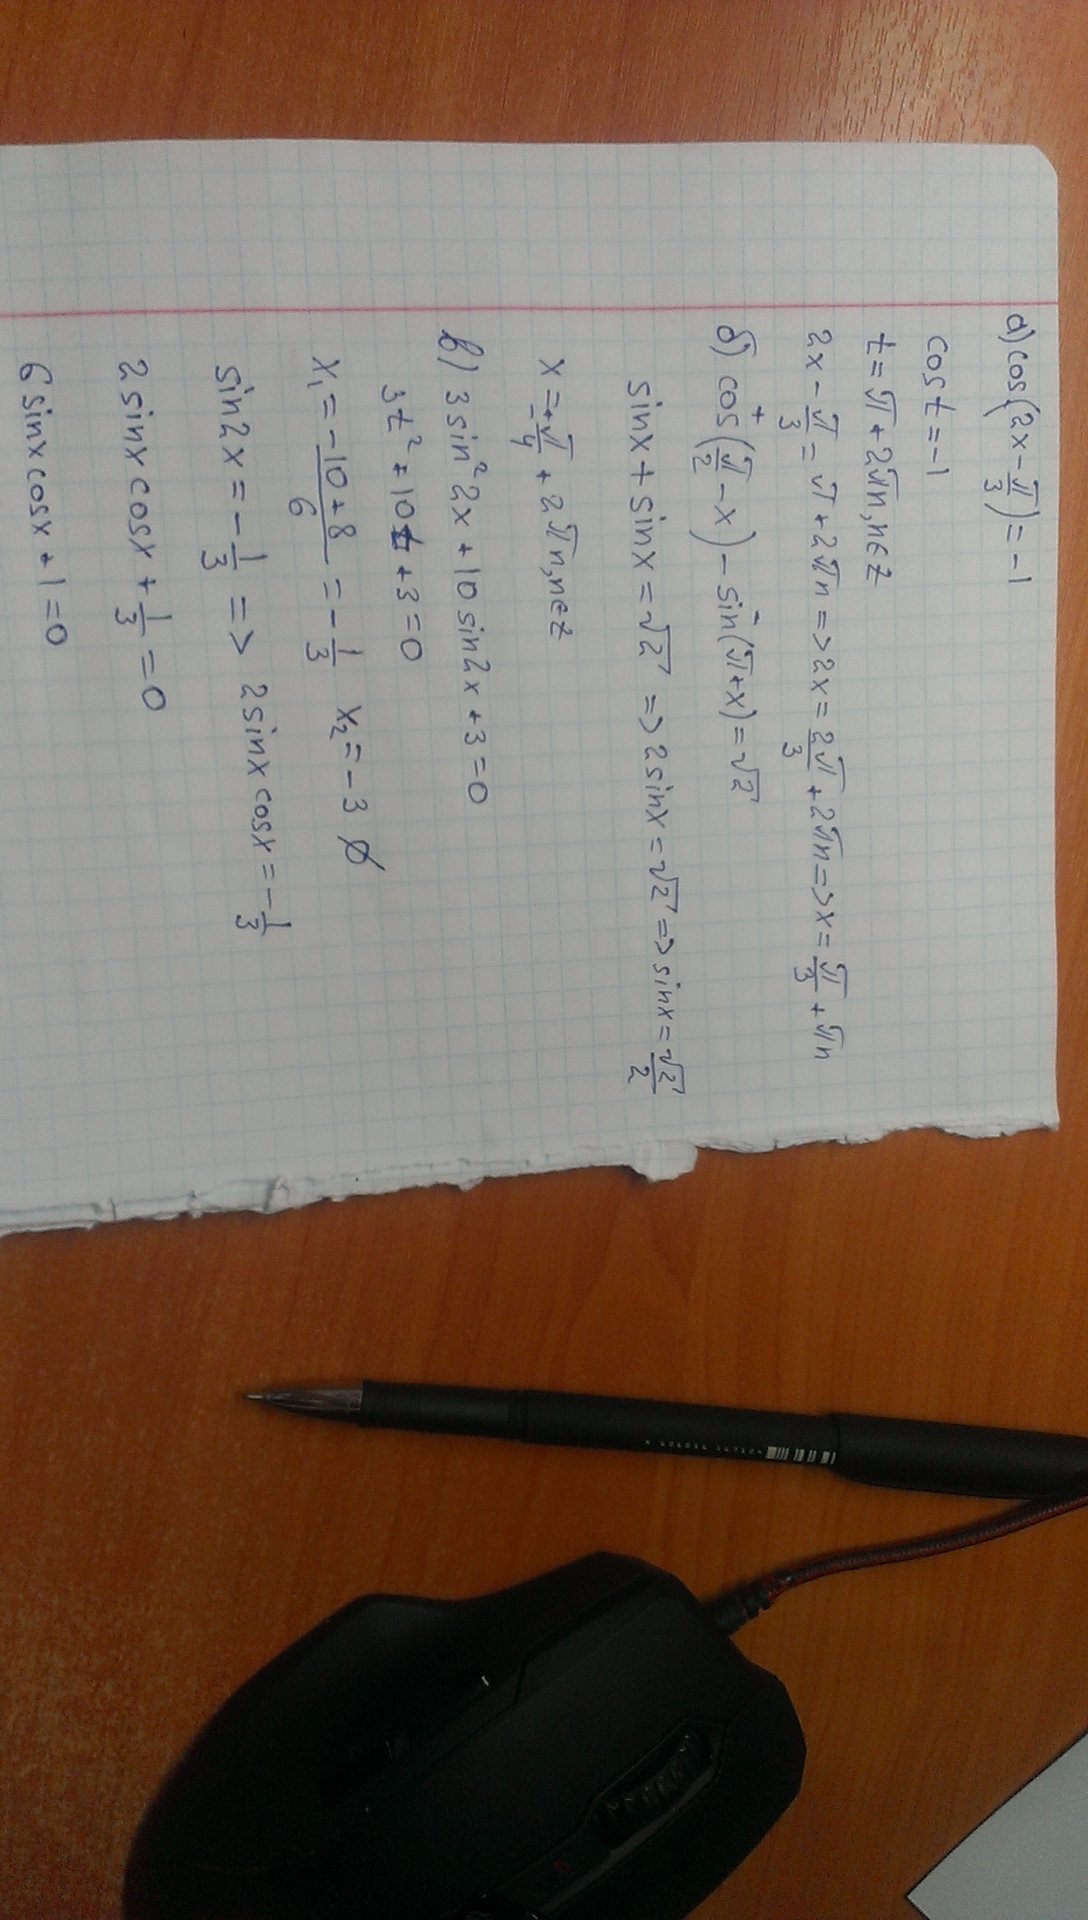 а) cos(2x - π/3) = -1
cos t = -1
t = π + 2πn, n∈Z
2x - π/3 = π + 2πn => 2x = 2π/3 + 2πn => x = π/3 + πn
б) cos(π/2 - x) - sin(π + x) = √2
sinx + sinx = √2 => 2sinx = √2 => sinx = √2/2
x = ±π/4 + 2πn, n∈Z
в) 3sin²2x + 10sin2x + 3 = 0
3t² + 10t + 3 = 0
x₁ = (-10 + 8)/6 = -1/3   x₂ = -3 ∅
sin2x = -1/3 => 2sinx cosx = -1/3
2sinx cosx + 1/3 = 0
6sinx cosx + 1 = 0